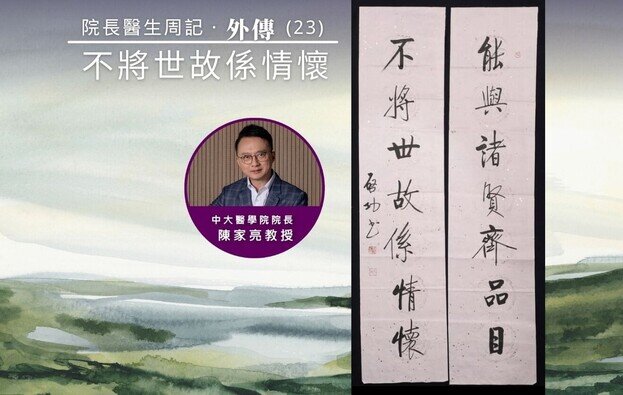 院長醫生周記．外傳 (23)
不將世故係情懷
中大醫學院院長
陳家亮教授
能與諸賢齊品目
不將世故係情懷
啓功書